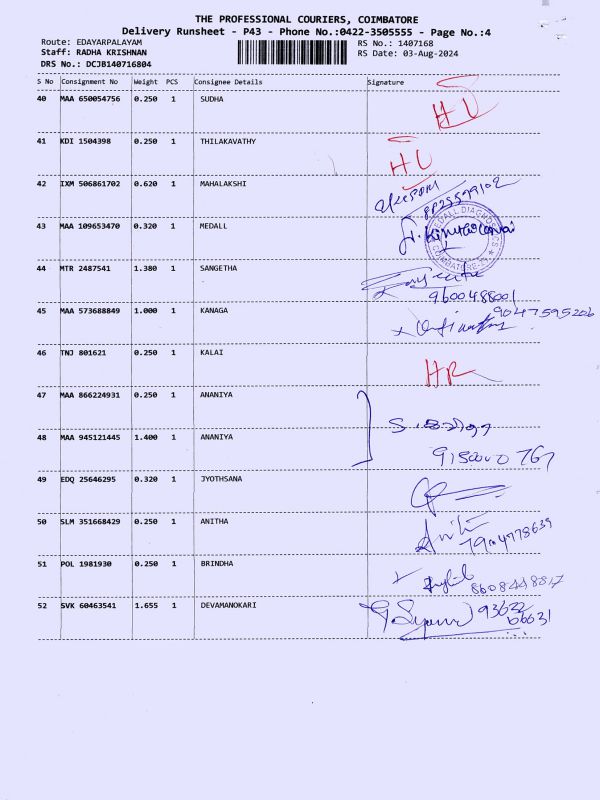 THE PROFESSIONAL COURIERS, COIMBATORE
Delivery Runsheet - P43 - Phone No.:0422-3505555 - Page No.:4
Route: EDAYARPALAYAM RS No.: 1407168
Staff: RADHA KRISHNAN RS Date: 03-Aug-2024
DRS No.: DCJB140716804
S No Consignment No Weight PCS Consignee Details Signature
40 MAA 650054756 0.250 1 SUDHA HU
41 KDI 1504398 0.250 1 THILAKAVATHY HU
42 IXM 506861702 0.620 1 MAHALAKSHI
43 MAA 109653470 0.320 1 MEDALL
MEDALL DIAGNOSTICS
COIMBATORE-25
44 MTR 2487541 1.380 1 SANGETHA
9600488001
45 MAA 573688849 1.000 1 KANAGA 9047595206
46 TNJ 801621 0.250 1 KALAI HR
47 MAA 866224931 0.250 1 ANANIYA
48 MAA 945121445 1.400 1 ANANIYA
49 EDQ 25646295 0.320 1 JYOTHSANA
50 SLM 351668429 0.250 1 ANITHA
51 POL 1981930 0.250 1 BRINDHA
8608448817
52 SVK 60463541 1.655 1 DEVAMANOKARI 93622
66631